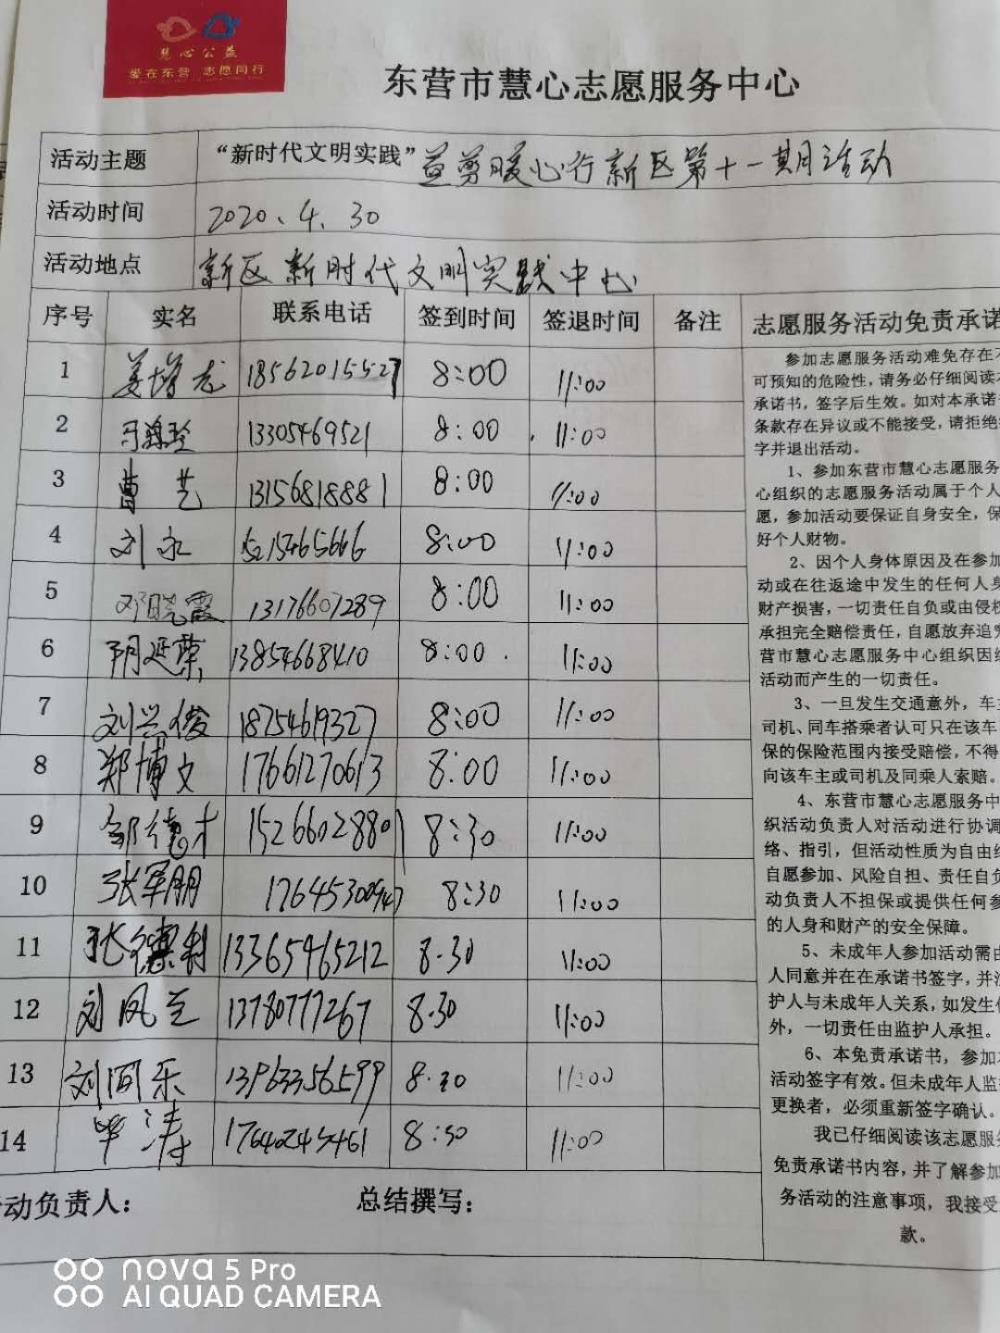 慧心公益
爱在东营 志愿同行
东营市慧心志愿服务中心
活动主题 “新时代文明实践”益剪暖心行新区第十一期活动
活动时间 2020.4.30
活动地点 新区新时代文明实践中心
序号 实名 联系电话 签到时间 签退时间 备注 志愿服务活动免责承诺
1 姜增龙 18562015527 8:00 11:00
2 13305469521 8:00 11:00
3 曹艺 13156818881 8:00 11:00
4 刘永 15215465666 8:00 11:00
5 邓晓霞 13176607289 8:00 11:00
6 13854668410 8:00 11:00
7 刘兴俊 18754619327 8:00 11:00
8 郑博文 17661270613 8:00 11:00
9 邹德才 15266028801 8:30 11:00
10 张军朋 8:30 11:00
11 张德利 13365465212 8.30 11:00
12 刘凤兰 13780777267 8.30 11:00
13 刘同乐 13963356599 8.30 11:00
14 毕涛 8:30 11:00
参加志愿服务活动难免存在不
可预知的危险性,请务必仔细阅读本
承诺书,签字后生效。如对本承诺书
条款存在异议或不能接受,请拒绝签
字并退出活动。
1、参加东营市慧心志愿服务
心组织的志愿服务活动属于个人
愿,参加活动要保证自身安全,保
好个人财物。
2、因个人身体原因及在参加
动或在往返途中发生的任何人身
财产损害,一切责任自负或由侵权
承担完全赔偿责任,自愿放弃追究
营市慧心志愿服务中心组织因组
活动而产生的一切责任。
3、一旦发生交通意外,车主
司机、同车搭乘者认可只在该车
保的保险范围内接受赔偿,不得
向该车主或司机及同乘人索赔。
4、东营市慧心志愿服务中
织活动负责人对活动进行协调
络、指引,但活动性质为自由组
自愿参加、风险自担、责任自负
动负责人不担保或提供任何参
的人身和财产的安全保障。
5、未成年人参加活动需由
人同意并在在承诺书签字,并注
护人与未成年人关系,如发生任
外,一切责任由监护人承担。
6、本免责承诺书,参加本
活动签字有效。但未成年人监护
更换者,必须重新签字确认。
我已仔细阅读该志愿服务
免责承诺书内容,并了解参加
务活动的注意事项,我接受
款。
动负责人: 总结撰写:
nova 5 Pro
AI QUAD CAMERA